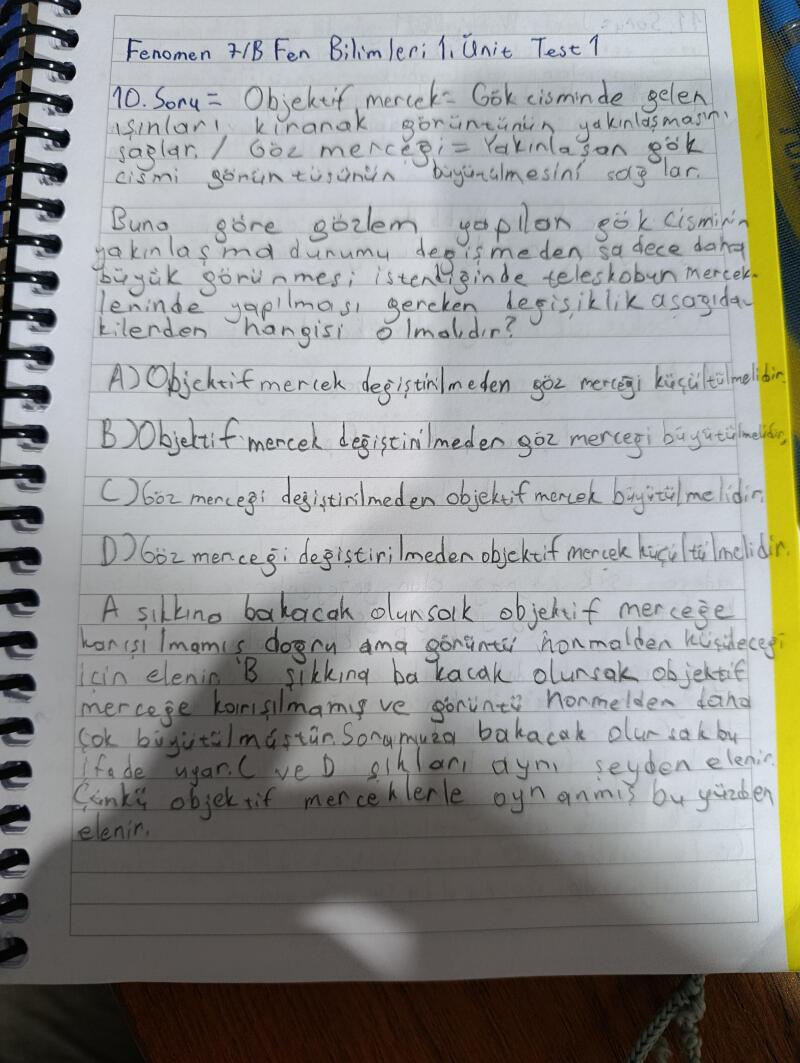 Fenomen 7/B Fen Bilimleri 1. Ünit Test 1
10. Soru = Objektif mercek = Gök cisminde gelen
ışınları kıranak görüntünün yakınlaşmasını
sağlar. / Göz merceği = Yakınlaşan gök
cismi görüntüsünün büyünülmesini sağlar.
Buna göre gözlem yapılan gök cisminin
yakınlaşma durumu değişmeden sadece daha
büyük görünmesi istenliğinde teleskobun mercek-
leninde yapılması gereken değişiklik aşağıda-
kilerden hangisi olmalıdır?
A) Objektif mercek değiştirilmeden göz merceği küçültülmelidir.
B) Objektif mercek değiştirilmeden göz merceği büyütülmelidir.
C) Göz merceği değiştirilmeden objektif mercek büyütülmelidir.
D) Göz merceği değiştirilmeden objektif mercek küçültülmelidir.
A şıkkına bakacak olunsak objektif merceğe
karışılmamış doğru ama görüntü normalden küçüleceği
için elenir. B şıkkına bakacak olursak objektif
merceğe karışılmamış ve görüntü normelden daha
çok büyütülmüştür. Sorumuza bakacak olursak bu
ifade uyar. C ve D şıkları aynı şeyden elenir.
Çünkü objektif merceklerle oynanmış bu yüzden
elenir.